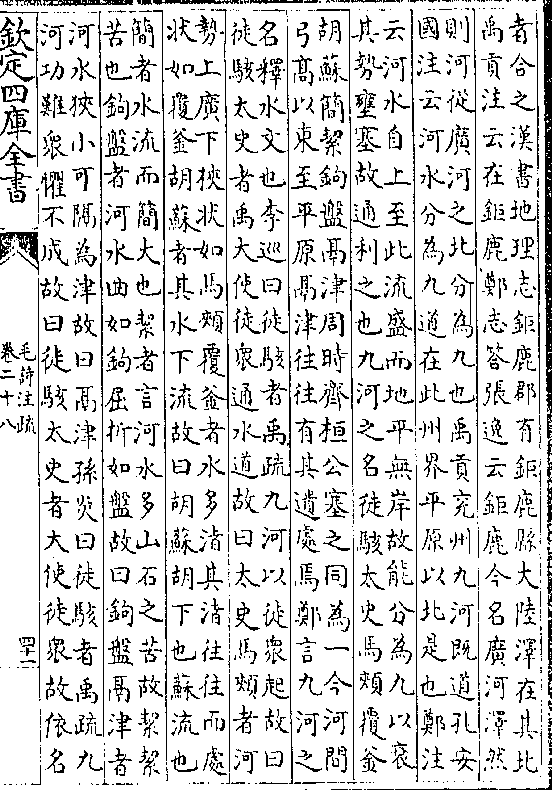 者合之漢書地理志鉅鹿郡有鉅鹿縣大陸澤在其北
禹貢注云在鉅鹿鄭志答張逸云鉅鹿今名廣河澤然
則河從廣河之北分為九也禹貢兖州九河既道孔安
國注云河水分為九道在此州界平原以北是也鄭注
云河水自上至此流盛而地平無岸故能分為九以衰
其勢壅塞故通利之也九河之名徒駭太史馬頰覆釜
胡蘇簡絜鉤盤鬲津周時齊桓公塞之同為一今河間
弓髙以東至平原鬲津往往有其遺處焉鄭言九河之
名釋水文也李巡曰徒駭者禹疏九河以徒衆起故曰
徒駭太史者禹大使徒衆通水道故曰太史馬頰者河
勢上廣下狹狀如馬頰覆釜者水多渚其渚往往而處
狀如覆釜胡蘇者其水下流故曰胡蘇胡下也蘇流也
簡者水流而簡大也絜者言河水多山石之苦故絜絜
苦也鉤盤者河水曲如鉤屈折如盤故曰鉤盤鬲津者
河水狹小可隔為津故曰鬲津孫炎曰徒駭者禹疏九
河功難衆懼不成故曰徒駭太史者大使徒衆故依名
欽定四庫全書
毛詩注疏
卷二十八
四十一